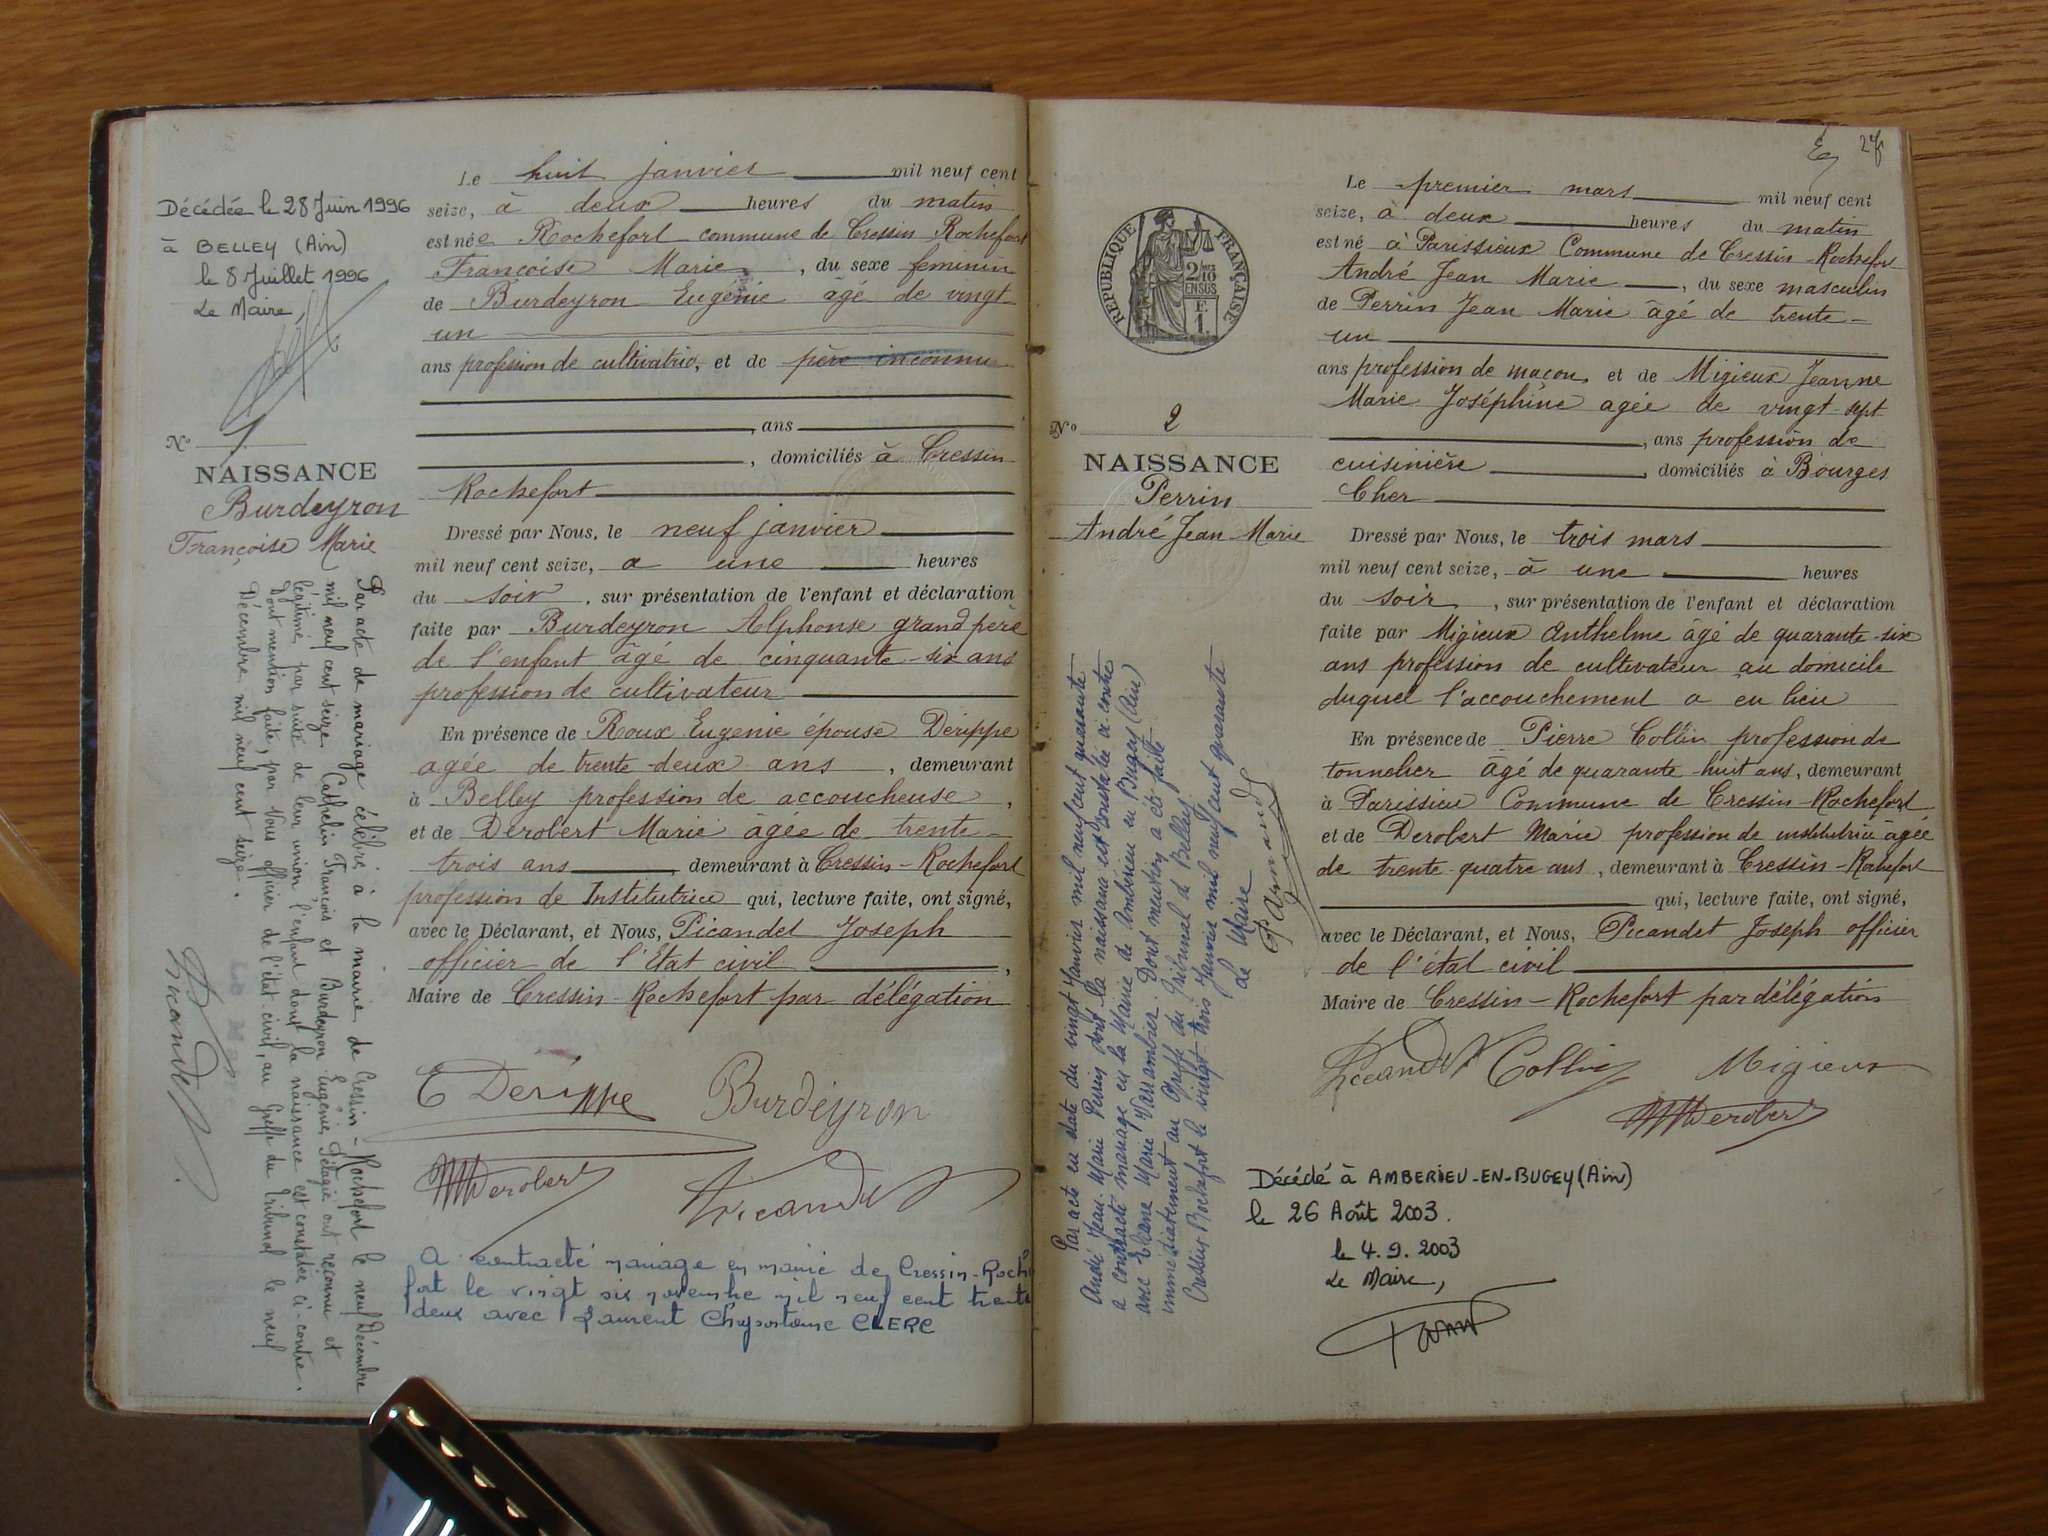 Décédée le 28 Juin 1996
à BELLEY (Ain)
le 8 Juillet 1996
Le Maire,
N° 1
NAISSANCE
Burdeyron
Françoise Marie
Le huit janvier mil neuf cent
seize, à deux heures du matin
est née Rochefort commune de Cressin Rochefort
Françoise Marie, du sexe feminin
de Burdeyron Eugénie agé de vingt
un
ans profession de cultivatrice, et de père inconnu
, ans
, domiciliés à Cressin
Rochefort
Dressé par Nous, le neuf janvier
mil neuf cent seize, a une heures
du soir, sur présentation de l'enfant et déclaration
faite par Burdeyron Alphonse grand père
de l'enfant âgé de cinquante-six ans
profession de cultivateur
En présence de Roux Eugenie épouse Derippe
agée de trente-deux ans, demeurant
à Belley profession de accoucheuse,
et de Derobert Marie âgée de trente-
trois ans demeurant à Cressin-Rochefort
profession de Institutrice qui, lecture faite, ont signé,
avec le Déclarant, et Nous, Picandet Joseph
officier de l'Etat civil,
Maire de Cressin-Rochefort par délégation
E Derippe Burdeyron
MDerobert Picandet
A contracté mariage en mairie de Cressin-Roche
fort le vingt six novembre mil neuf cent trente
deux avec Laurent Chrysostome CLERC
Par acte de mariage célébré à la mairie de Cressin-Rochefort le neuf Décembre
mil neuf cent seize Cathelin François et Burdeyron Eugénie Pélagie ont reconnu et
légitimé, par suite de leur union l'enfant dont la naissance est constatée ci-contre.
Dont mention faite, par Nous officier de l'état civil, au Greffe du Tribunal le neuf
Décembre mil neuf cent seize.
Picandet
27
RÉPUBLIQUE FRANÇAISE
2/10
EN SUS
E.
1.
N° 2
NAISSANCE
Perrin
André Jean Marie
Le premier mars mil neuf cent
seize, à deux heures du matin
est né à Parissieux Commune de Cressin-Rochefort
André Jean Marie, du sexe masculin
de Perrin Jean Marie âgé de trente-
un
ans profession de maçon, et de Migieux Jeanne
Marie Joséphine agée de vingt-sept
, ans profession de
cuisinière, domiciliés à Bourges
Cher
Dressé par Nous, le trois mars
mil neuf cent seize, à une heures
du soir, sur présentation de l'enfant et déclaration
faite par Migieux Anthelme âgé de quarante-six
ans profession de cultivateur au domicile
duquel l'accouchement a eu lieu
En présence de Pierre Collin profession de
tonnelier âgé de quarante-huit ans, demeurant
à Parissieu Commune de Cressin-Rochefort
et de Derobert Marie profession de institutrice âgée
de trente-quatre ans, demeurant à Cressin-Rochefort
qui, lecture faite, ont signé,
avec le Déclarant, et Nous, Picandet Joseph officier
de l'état civil
Maire de Cressin-Rochefort par délégation
Picandet Collin Migieux
MDerobert
Décédé à AMBERIEU-EN-BUGEY (Ain)
le 26 Août 2003.
le 4.9.2003
Le Maire,
Par acte en date du vingt Janvier mil neuf cent quarante
André Jean-Marie Perrin dont la naissance est constatée ci-contre
a contracté mariage en la Mairie de Ambérieu en Bugey (Ain)
avec Eliane Marie Varrambier. Dont mention a été faite
immédiatement au Greffe du Tribunal de Belley.
Cressin-Rochefort le vingt-trois Janvier mil neuf cent quarante
Le Maire